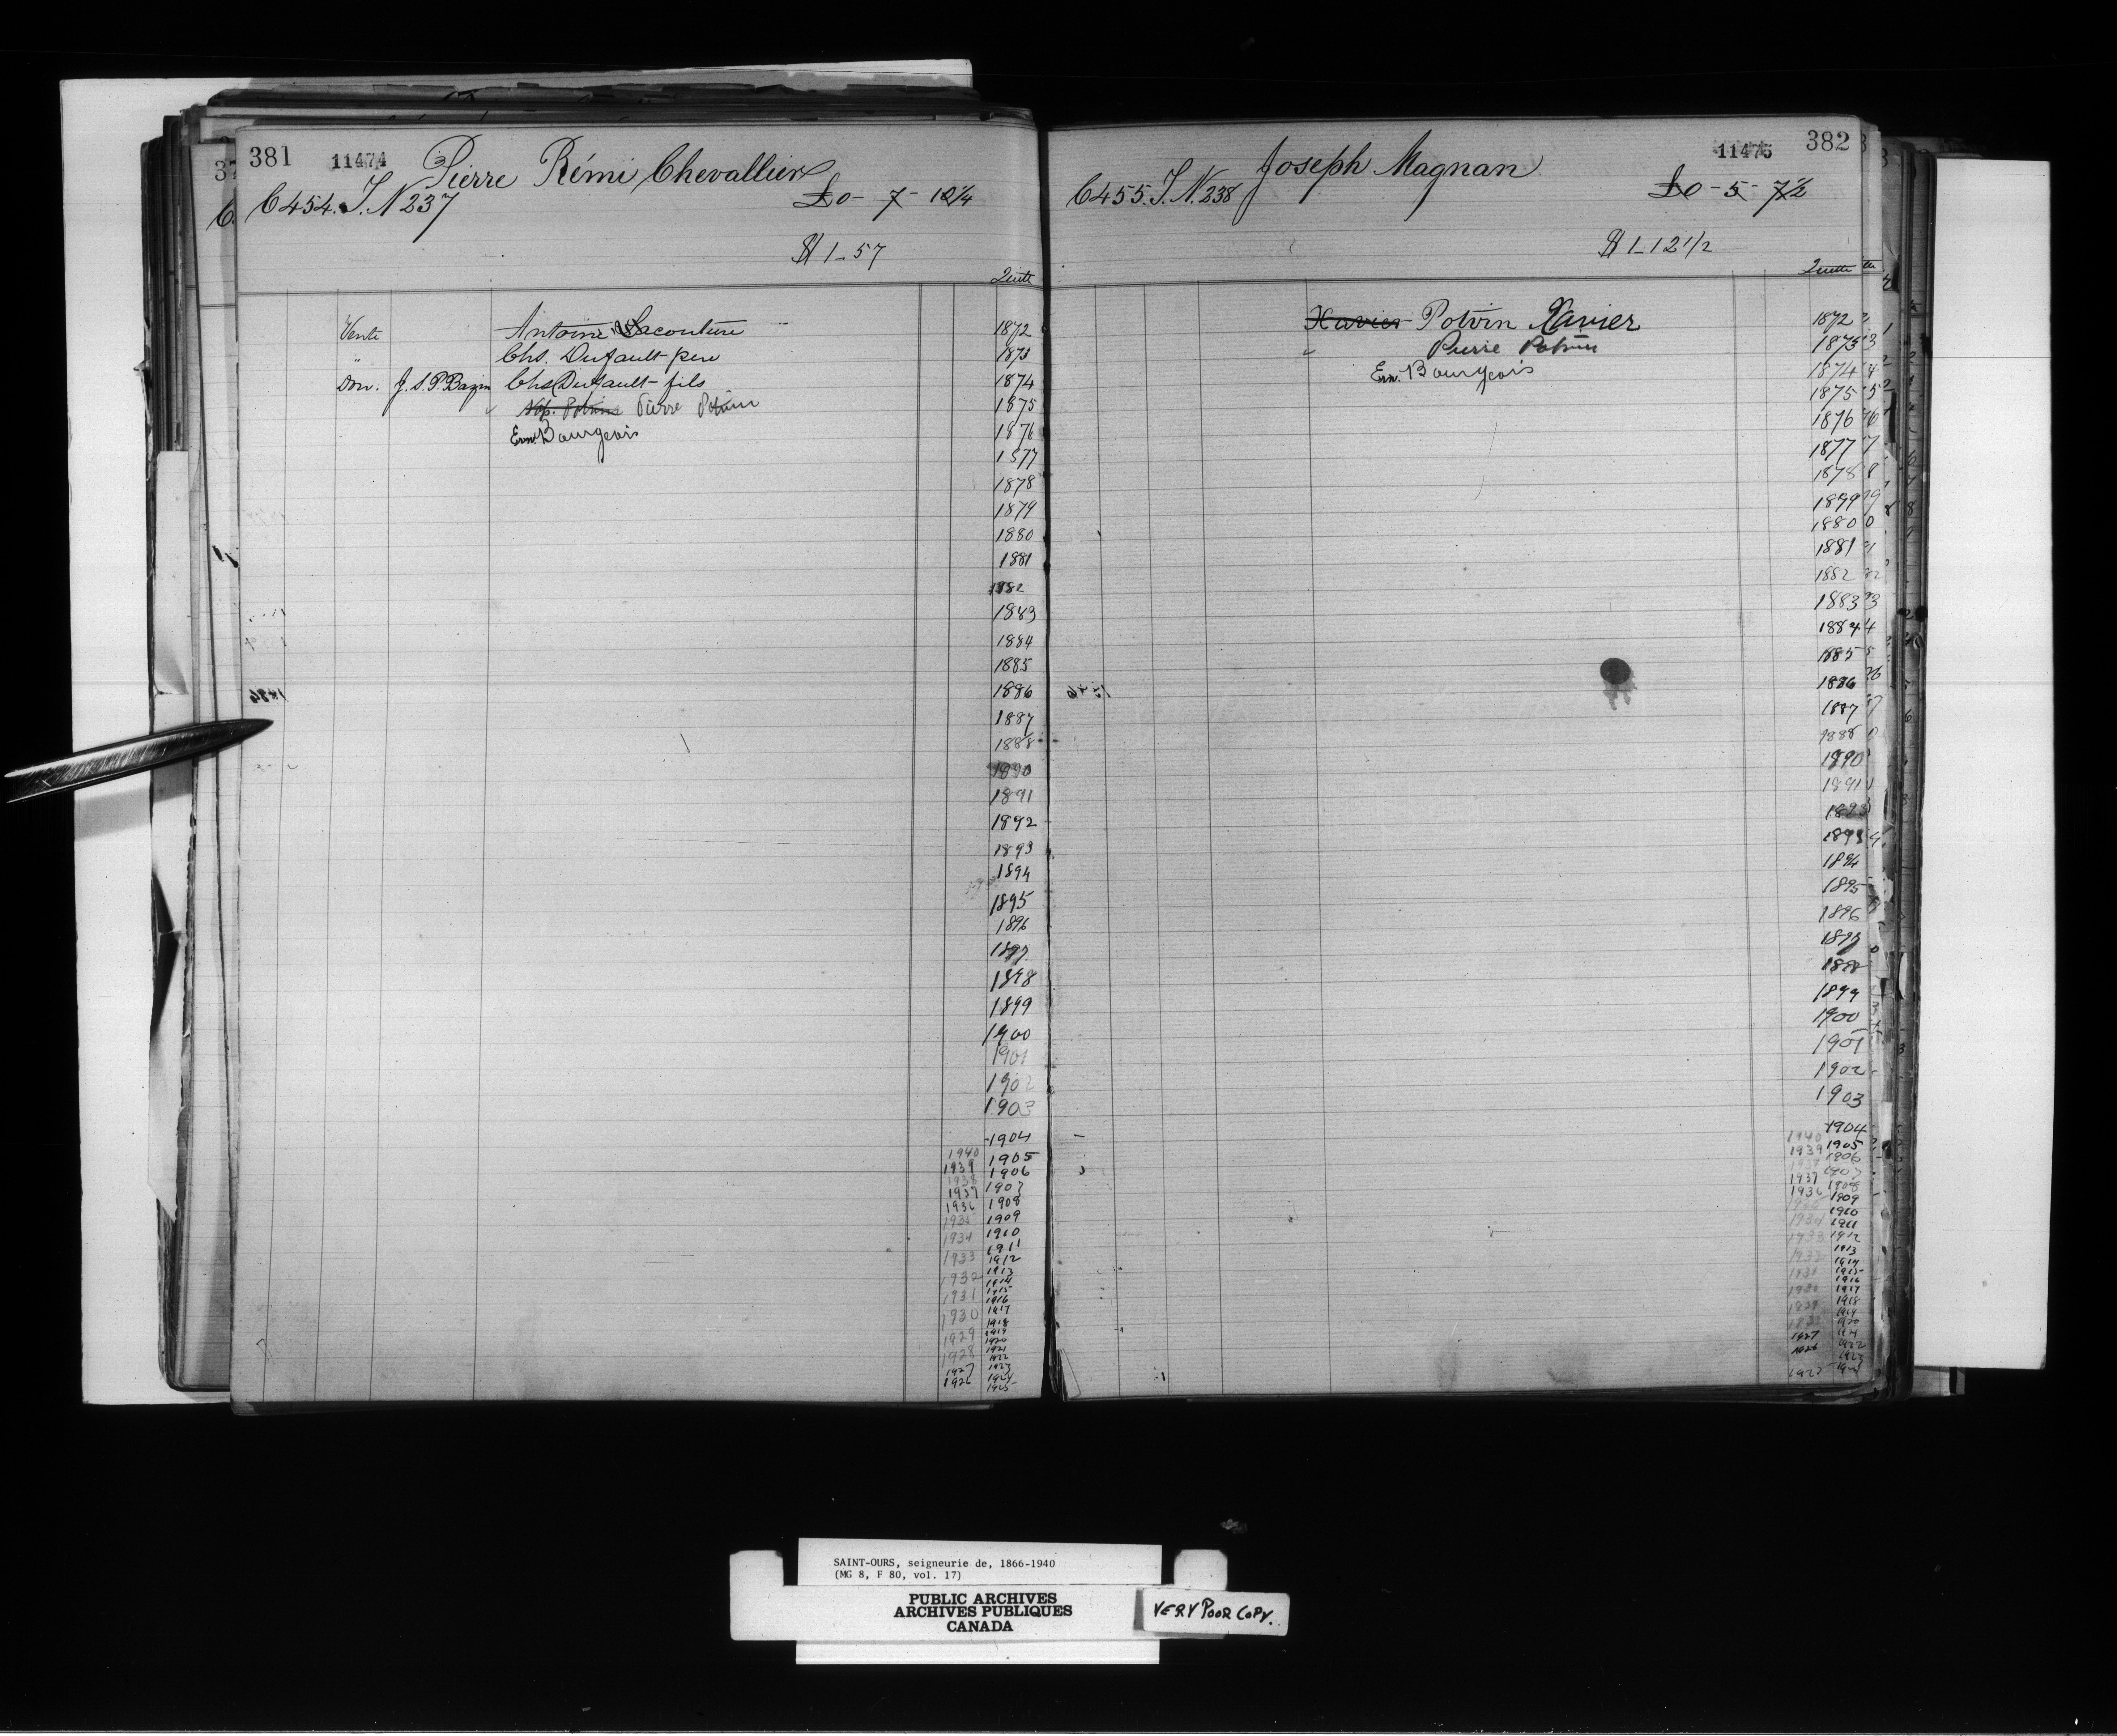 381 11474 Pierre Rémi Chevallier
C 454. T. N 237 £0 - 7 - 10 1/4
$ 1 - 57
Quitte
Vente Antoine Lacouture 1872
" Chs. Dufault père 1873
Don. J. S. P. Bazin Chs Dufault fils 1874
Nap. Potvin Pierre Potvin 1875
Ern. Bourgeois 1876
1877
1878
1879
1880
1881
1882
1883
1884
1885
1886
1887
1888
1890
1891
1892
1893
1894
1895
1896
1897
1898
1899
1900
1901
1902
1903
1904
1940 1905
1939 1906
1938 1907
1937 1908
1936 1909
1935 1910
1934 1911
1933 1912
1932 1913
1914
1931 1915
1916
1930 1917
1918
1929 1919
1920
1928 1921
1922
1927 1923
1926 1924
1925
382 11475 Joseph Magnan
C 455. T. N. 238 £0 - 5 - 7 1/2
$ 1 - 12 1/2
Quitte
Xavier Potvin Xavier 1872
Pierre Potvin 1873
Ern. Bourgeois 1874
1875
1876
1877
1878
1879
1880
1881
1882
1883
1884
1885
1886
1887
1888
1890
1891
1893
1894
1895
1896
1897
1898
1899
1900
1901
1902
1903
1904
1940 1905
1939 1906
1907
1937 1908
1936 1909
1910
1934 1911
1933 1912
1913
1914
1915
1916
1917
1918
1919
1920
1927
1922
1923
SAINT-OURS, seigneurie de, 1866-1940
(MG 8, F 80, vol. 17)
PUBLIC ARCHIVES
ARCHIVES PUBLIQUES
CANADA
VERY POOR COPY.